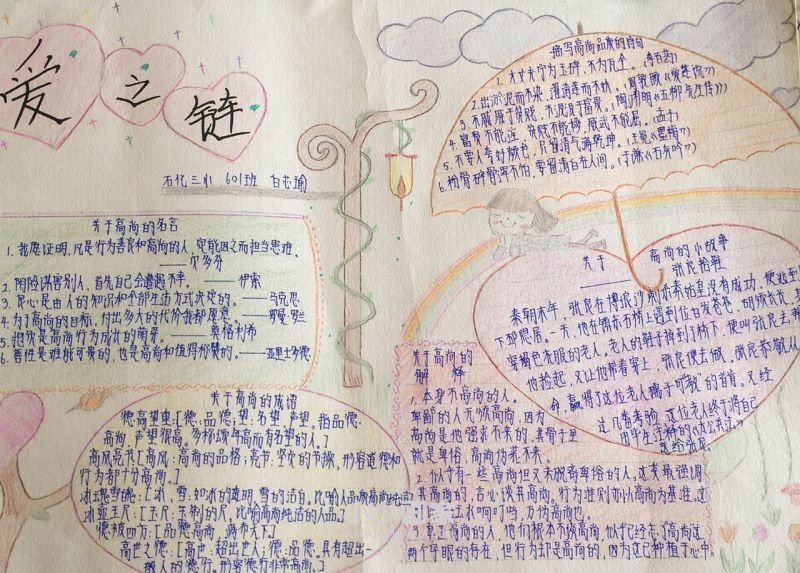 爱之链
石化三小 601班 白芯瑜
关于高尚的名言
1. 我愿证明,凡是行为善良和高尚的人,定能因之而担当患难。
——贝多芬
2. 阴险谋害别人,首先自己会遭起不幸。——伊索
3. 良心是由人的知识和全部生活方式决定的。——马克思
4. 为了高尚的目标,付出多大的代价我都愿意。——罗曼·罗兰
5. 把欢是高尚行为成长的萌芽。——莫格利希
6. 善性是难能可贵的,也是高尚和值得称赞的。——亚里士多德
关于高尚的成语
德高望重:[德:品德;望:名望,声望。指品德
高尚,声望很高。多称颂年高而有名望的人。]
高风亮节:[高风:高尚的品格;亮节:坚贞的节操,形容道德和
行为都十分高尚。]
冰魂雪魄:[冰、雪:如冰的透明,雪的洁白。比喻人品质高尚纯洁]
冰壶玉尺:[玉尺:玉制的尺,比喻高尚纯洁的人品]
德被四方:[品德高尚,满布天下]
高世之德:[高世:超出世人;德:品德。具有超出一
般人的德行。形容德行非常高尚。]
描写高尚品质的诗句
1. 大丈夫宁为玉碎,不为瓦全。(李百药)
2. 出淤泥而不染,濯清涟而不妖。(周敦颐《爱莲说》)
3. 不戚戚于贫贱,不汲汲于富贵。(陶渊明《五柳先生传》)
4. 富贵不能淫,贫贱不能移,威武不能屈。(孟子)
5. 不要人夸好颜色,只留清气满乾坤。(王冕《墨梅》)
6. 粉骨碎骨浑不怕,要留清白在人间。(于谦《石灰吟》)
关于高尚的小故事
——张良拾鞋
秦朝末年,张良在博浪沙刺杀秦始皇没有成功,便逃到
下邳隐居。一天,他在镇东石桥上遇到一位白发苍苍、胡须长长、
穿褐色衣服的老人。老人的鞋子掉到了桥下,便叫张良去帮
他捡起,又让他帮着穿上,张良便去做,张良恭敬从
命,赢得了这位老人"孺子可教"的首肯。又经
过几番考验,这位老人终于将自己
用毕生注释的《太公兵法》
送给张良。
关于高尚的
解释
1. 本身不高尚的人。
卑鄙的人无谈高尚,因为
高尚是他强求不来的,其骨子里
就是卑俗,高尚伪装不来。
2. 似乎有一些高尚但又未脱离卑俗的人,这类最强调
其高尚的,言必谈其高尚。行为准则亦以高尚为基准,这
3. 真正高尚的人,他们根本不谈高尚,似乎已经忘了高尚这
两个字眼的存在,但行为却是高尚的,因为这已种植于心中。